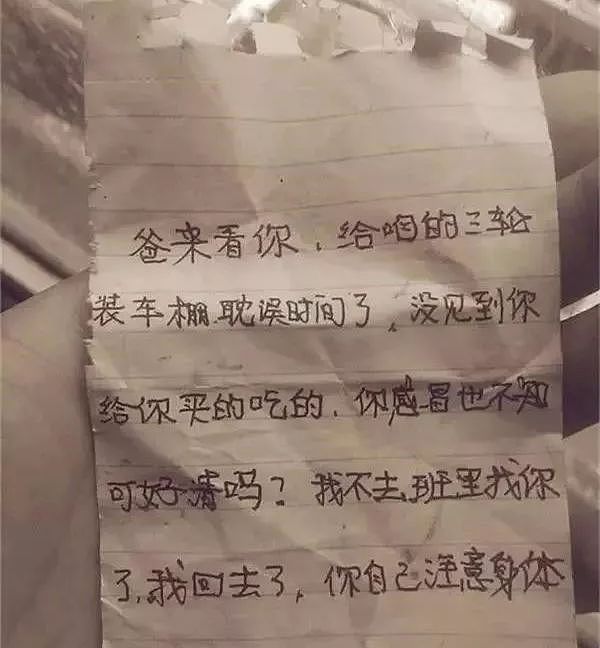 爸来看你，给咱的三轮
装车棚.耽误时间了，没见到你
给你买的吃的．你感冒也不知
可好清吗？我不去班里找你
了，我回去了，你自己注意身体